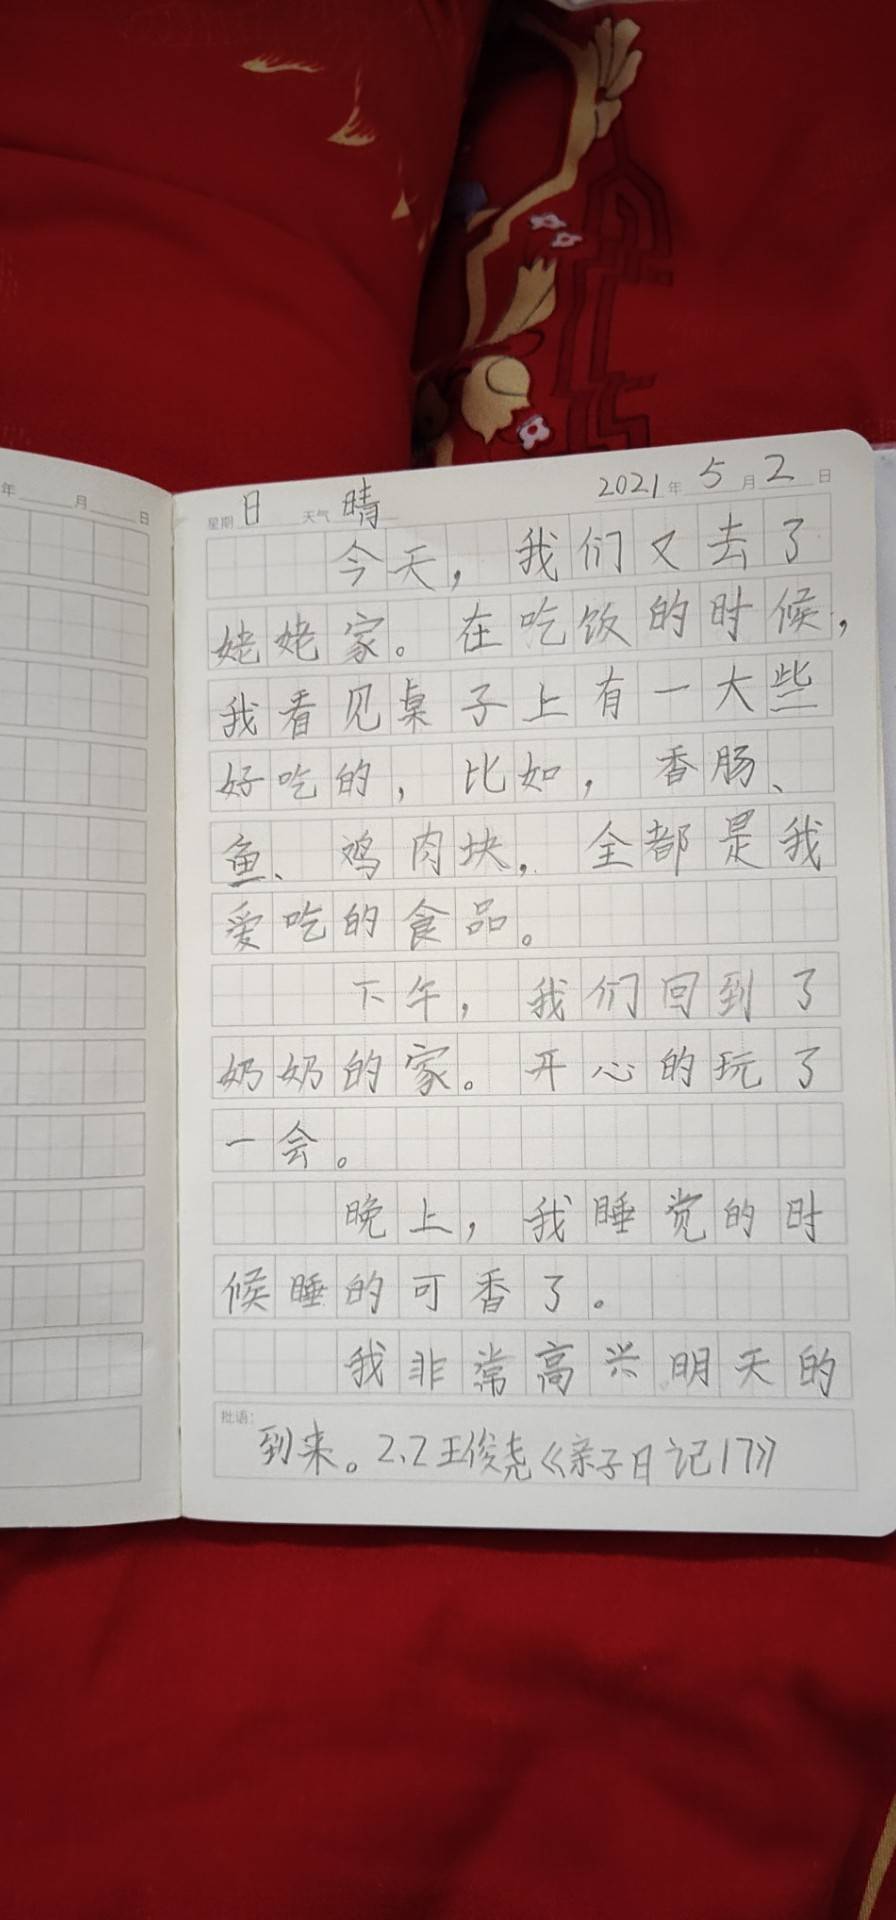 年 月 日
星期 日 天气 晴 2021年 5月 2日
今天，我们又去了
姥姥家。在吃饭的时候，
我看见桌子上有一大些
好吃的，比如，香肠、
鱼、鸡肉块，全都是我
爱吃的食品。
下午，我们回到了
奶奶的家。开心的玩了
一会。
晚上，我睡觉的时
候睡的可香了。
我非常高兴明天的
批语：
到来。2、2王俊尧《亲子日记17》